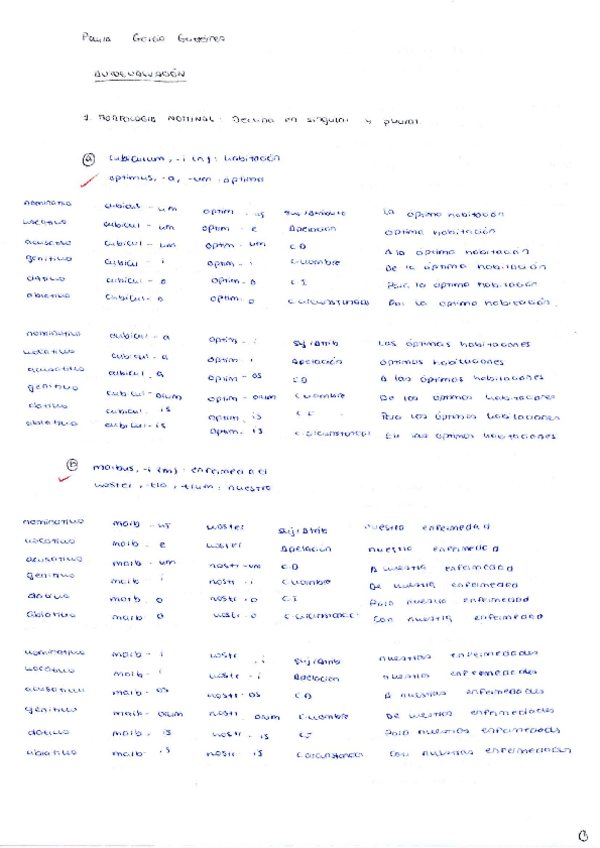 Paula García Gutiérrez
AUTOEVALUACIÓN
1. MORFOLOGÍA NOMINAL: Declina en singular y plural.
a cubiculum, -i (n): habitación
optimus, -a, -um: óptimo
nominativo cubicul - um optim - us suj/atributo La óptima habitación
vocativo cubicul - um optim - e Apelación óptima habitación
acusativo cubicul - um optim - um CD A la óptima habitación
genitivo cubicul - i optim - i C.nombre De la óptima habitación
dativo cubicul - o optim - o CI Para la óptima habitación
ablativo cubicul - o optim - o C.circunstancial Por la óptima habitación
nominativo cubicul - a optim - i suj/atrib Las óptimas habitaciones
vocativo cubicul - a optim - i Apelación óptimas habitaciones
acusativo cubicul - a optim - os CD A las óptimas habitaciones
genitivo cubicul - orum optim - orum C.nombre De las óptimas habitaciones
dativo cubicul - is optim - is CI Para las óptimas habitaciones
ablativo cubicul - is optim - is C.circunstancial En las óptimas habitaciones
b morbus, -i (m): enfermedad
noster, -tra, -trum: nuestro
nominativo morb - us noster suj/atrib nuestra enfermedad
vocativo morb - e noster Apelación nuestra enfermedad
acusativo morb - um nostr - um CD A nuestra enfermedad
genitivo morb - i nostr - i C.nombre De nuestra enfermedad
dativo morb - o nostr - o CI Para nuestra enfermedad
ablativo morb - o nostr - o C.circunstancial Con nuestra enfermedad
nominativo morb - i nostr - i suj/atrib nuestras enfermedades
vocativo morb - i nostr - i Apelación nuestras enfermedades
acusativo morb - os nostr - os CD A nuestras enfermedades
genitivo morb - orum nostr - orum C.nombre De nuestras enfermedades
dativo morb - is nostr - is CI Para nuestras enfermedades
ablativo morb - is nostr - is Circunstancial Con nuestras enfermedades